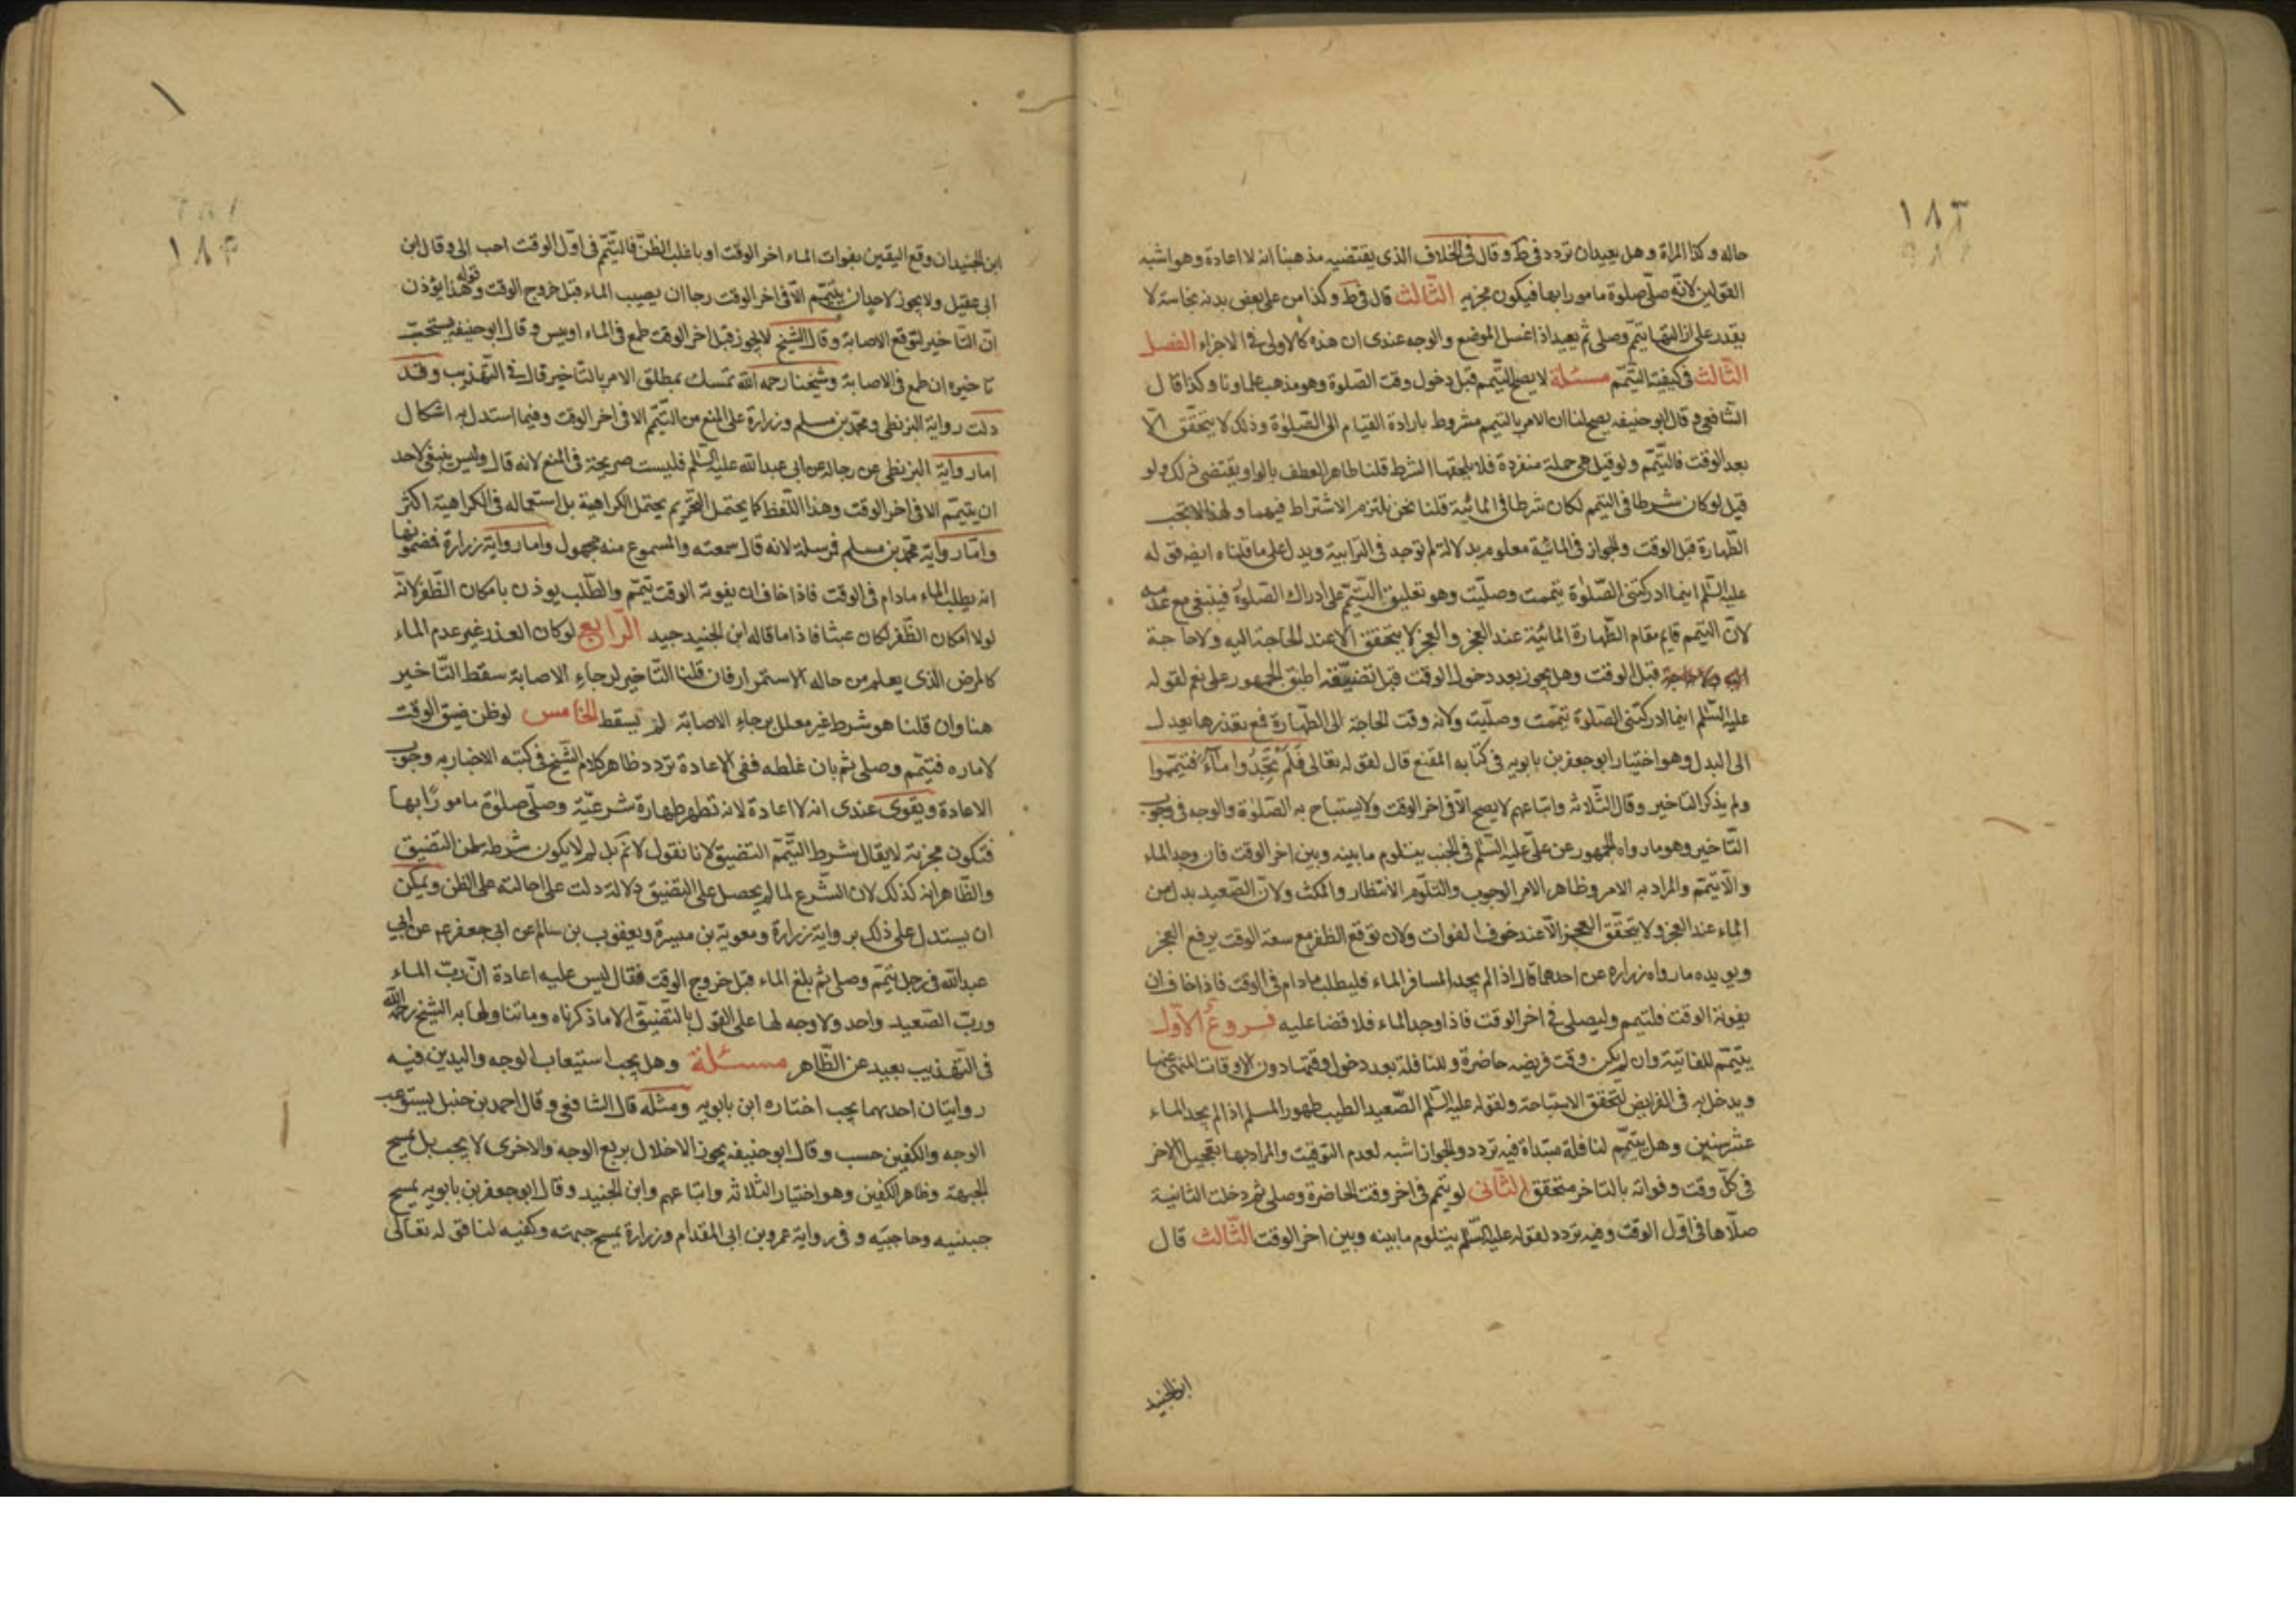 ١٨٣
حاله وكذا المراة وهل يعيدان تردد فى ط وقال فى الخلاف الذى يقتضيه مذهبنا انه لا اعادة وهو اشبه
القولين لانه صلى صلوة مامورا بها فيكون مجزيه الثالث قال فى ط وكذا من على بعض بدنه نجاسة لا
يقدر على ازالتها يتيمم وصلى ثم يعيد اذا غسل الموضع والوجه عندى ان هذه كالاولى فى الاجزاء الفصل
الثالث فى كيفية التيمم مسئلة لا يصح التيمم قبل دخول وقت الصلوة وهو مذهب علماونا وكذا قال
الشافعى وقال ابو حنيفه يصح لنا ان الامر بالتيمم مشروط بارادة القيام الى الصلوة وذلك لا يتحقق الا
بعد الوقت فالتيمم ولو قيل هى جملة منفردة فلا يلحقها الشرط قلنا ظاهر العطف بالواو يقتضى ذلك ولو
قيل لو كان شرطا فى التيمم لكان شرطا فى المائية قلنا نحن نلتزم الاشتراط فيهما ولهذا لا تجب
الطهارة قبل الوقت والجواز فى المائية معلوم بدلالة لم توجد فى الترابية ويدل على ما قلناه ايضا قوله
عليه السلم اينما ادركتنى الصلوة تيممت وصليت وهو تعليق التيمم على ادراك الصلوة فينبغى مع عدمه
لان التيمم قايم مقام الطهارة المائية عند العجز والعجز لا يتحقق الا عند الحاجة اليه ولا حاجة
قبل الوقت وهل يجوز بعد دخول الوقت قبل تضيقه اطبق الجمهور على نعم لقوله
عليه السلم اينما ادركتنى الصلوة تيممت وصليت ولانه وقت الحاجة الى الطهارة فمع تعذرها يعدل
الى البدل وهو اختيار ابو جعفر بن بابويه فى كتابه المقنع قال لقوله تعالى فلم تجدوا ماء فتيمموا
ولم يذكر التاخير وقال الثلاثه واتباعهم لا يصح الا فى اخر الوقت ولا يستباح به الصلوة والوجه فى وجوب
التاخير وهو ما رواه الجمهور عن على عليه السلم فى الجنب يتلوم ما بينه وبين اخر الوقت فان وجد الماء
والا يتيمم والمراد به الامر وظاهر الامر الوجوب والتلوم الانتظار والمكث ولان الصعيد بدل من
الماء عند العجز ولا يتحقق العجز الا عند خوف الفوات ولان توقع الظفر مع سعة الوقت يرفع العجز
ويويده ما رواه زراره عن احدهما قال اذا لم يجد المسافر الماء فليطلب ما دام فى الوقت فاذا خاف ان
يفوته الوقت فليتيمم وليصلى فى اخر الوقت فاذا وجد الماء فلا قضا عليه فروع الاول
يتيمم للفائتة وان لم يكن وقت فريضه حاضرة وللنافلة بعد دخول وقتها دون الاوقات المنهى عنها
ويدخل به فى الفرايض لتحقق الاستباحة ولقوله عليه السلم الصعيد الطيب طهور المسلم اذا لم يجد الماء
عشر سنين وهل يتيمم لنافلة مبتداة فيه تردد والجواز اشبه لعدم التوقيت والمراد بها تعجيل الاجر
فى كل وقت وفواته بالتاخر متحقق الثانى لو تيمم فى اخر وقت الحاضرة وصلى ثم دخلت الثانية
صلاها فى اول الوقت وفيه تردد لقوله عليه السلم يتلوم ما بينه وبين اخر الوقت الثالث قال
ابن الجنيد
١٨۴
ابن الجنيد ان وقع اليقين بفوات الماء اخر الوقت او باغلب الظن فالتيمم فى اول الوقت احب الى وقال ابن
ابى عقيل ولا يجوز لاحد ان يتيمم الا فى اخر الوقت رجا ان يصيب الماء قبل خروج الوقت وقوله هذا يؤذن
ان التاخير لتوقع الاصابة وقال الشيخ لا يجوز قبل اخر الوقت طمع فى الماء او يئس وقال ابو حنيفه يستحب
تاخيره ان طمع فى الاصابة وشيخنا رحمه الله تمسك بمطلق الامر بالتاخير قال فى التهذيب وقد
دلت رواية البزنطى ومحمد بن مسلم وزرارة على المنع من التيمم الا فى اخر الوقت وفيما استدل به اشكال
اما رواية البزنطى عن رجاله عن ابى عبدالله عليه السلم فليست صريحة فى المنع لانه قال وليس ينبغى لاحد
ان يتيمم الا فى اخر الوقت وهذا اللفظ كما يحتمل التحريم يحتمل الكراهية بل استعماله فى الكراهية اكثر
واما رواية محمد بن مسلم فمرسلة لانه قال سمعته والمسموع منه مجهول واما رواية زرارة فمضمونها
انه يطلب الماء ما دام فى الوقت فاذا خاف ان يفوته الوقت تيمم والطلب يوذن بامكان الظفر لانه
لولا امكان الظفر لكان عبثا فاذا ما قاله ابن الجنيد جيد الرابع لو كان العذر غير عدم الماء
كالمرض الذى يعلم من حاله الاستمرار فان قلنا التاخير لرجاء الاصابة سقط التاخير
هنا وان قلنا هو شرط غير معلل برجاء الاصابة لم يسقط الخامس لو ظن ضيق الوقت
لاماره فتيمم وصلى ثم بان غلطه ففى الاعادة تردد ظاهر كلام الشيخ فى كتبه الاخباريه وجوب
الاعادة ويقوى عندى انه لا اعادة لانه تطهر طهارة شرعية وصلى صلوة مامورا بها
فتكون مجزية لا يقال شرط التيمم التضيق لانا نقول لا نم بل لم لا يكون شرطه ظن التضيق
والظاهر انه كذلك لان الشرع لما لم يحصل على التضيق دلالة دلت على احالته على الظن ويمكن
ان يستدل على ذلك برواية زرارة ومعوية بن ميسرة ويعقوب بن سالم عن ابى جعفر عم عن ابي
عبدالله فى رجل تيمم وصلى ثم بلغ الماء قبل خروج الوقت فقال ليس عليه اعادة ان رب الماء
ورب الصعيد واحد ولا وجه لها على القول بالتضيق الا ما ذكرناه وما تناولها به الشيخ رحمه الله
فى التهذيب بعيد عن الظاهر مسئلة وهل يجب استيعاب الوجه واليدين فيه
روايتان احدهما يجب اختاره ابن بابويه ومثله قال الشافعى وقال احمد بن حنبل يستوعب
الوجه والكفين حسب وقال ابو حنيفه يجوز الاخلال بربع الوجه والاخرى لا يجب بل يمسح
الجبهة وظاهر الكفين وهو اختيار الثلاثه واتباعهم وابن الجنيد وقال ابو جعفر بن بابويه يمسح
جبينيه وحاجبيه وفى رواية عمرو بن ابى المقدام وزرارة يمسح جبهته وكفيه لنا قوله تعالى